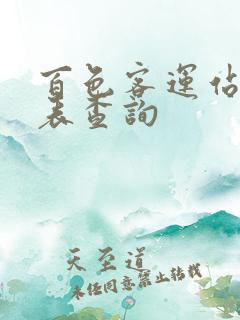 百色客運佔
表查詢
天至道
未任同意禁止转载